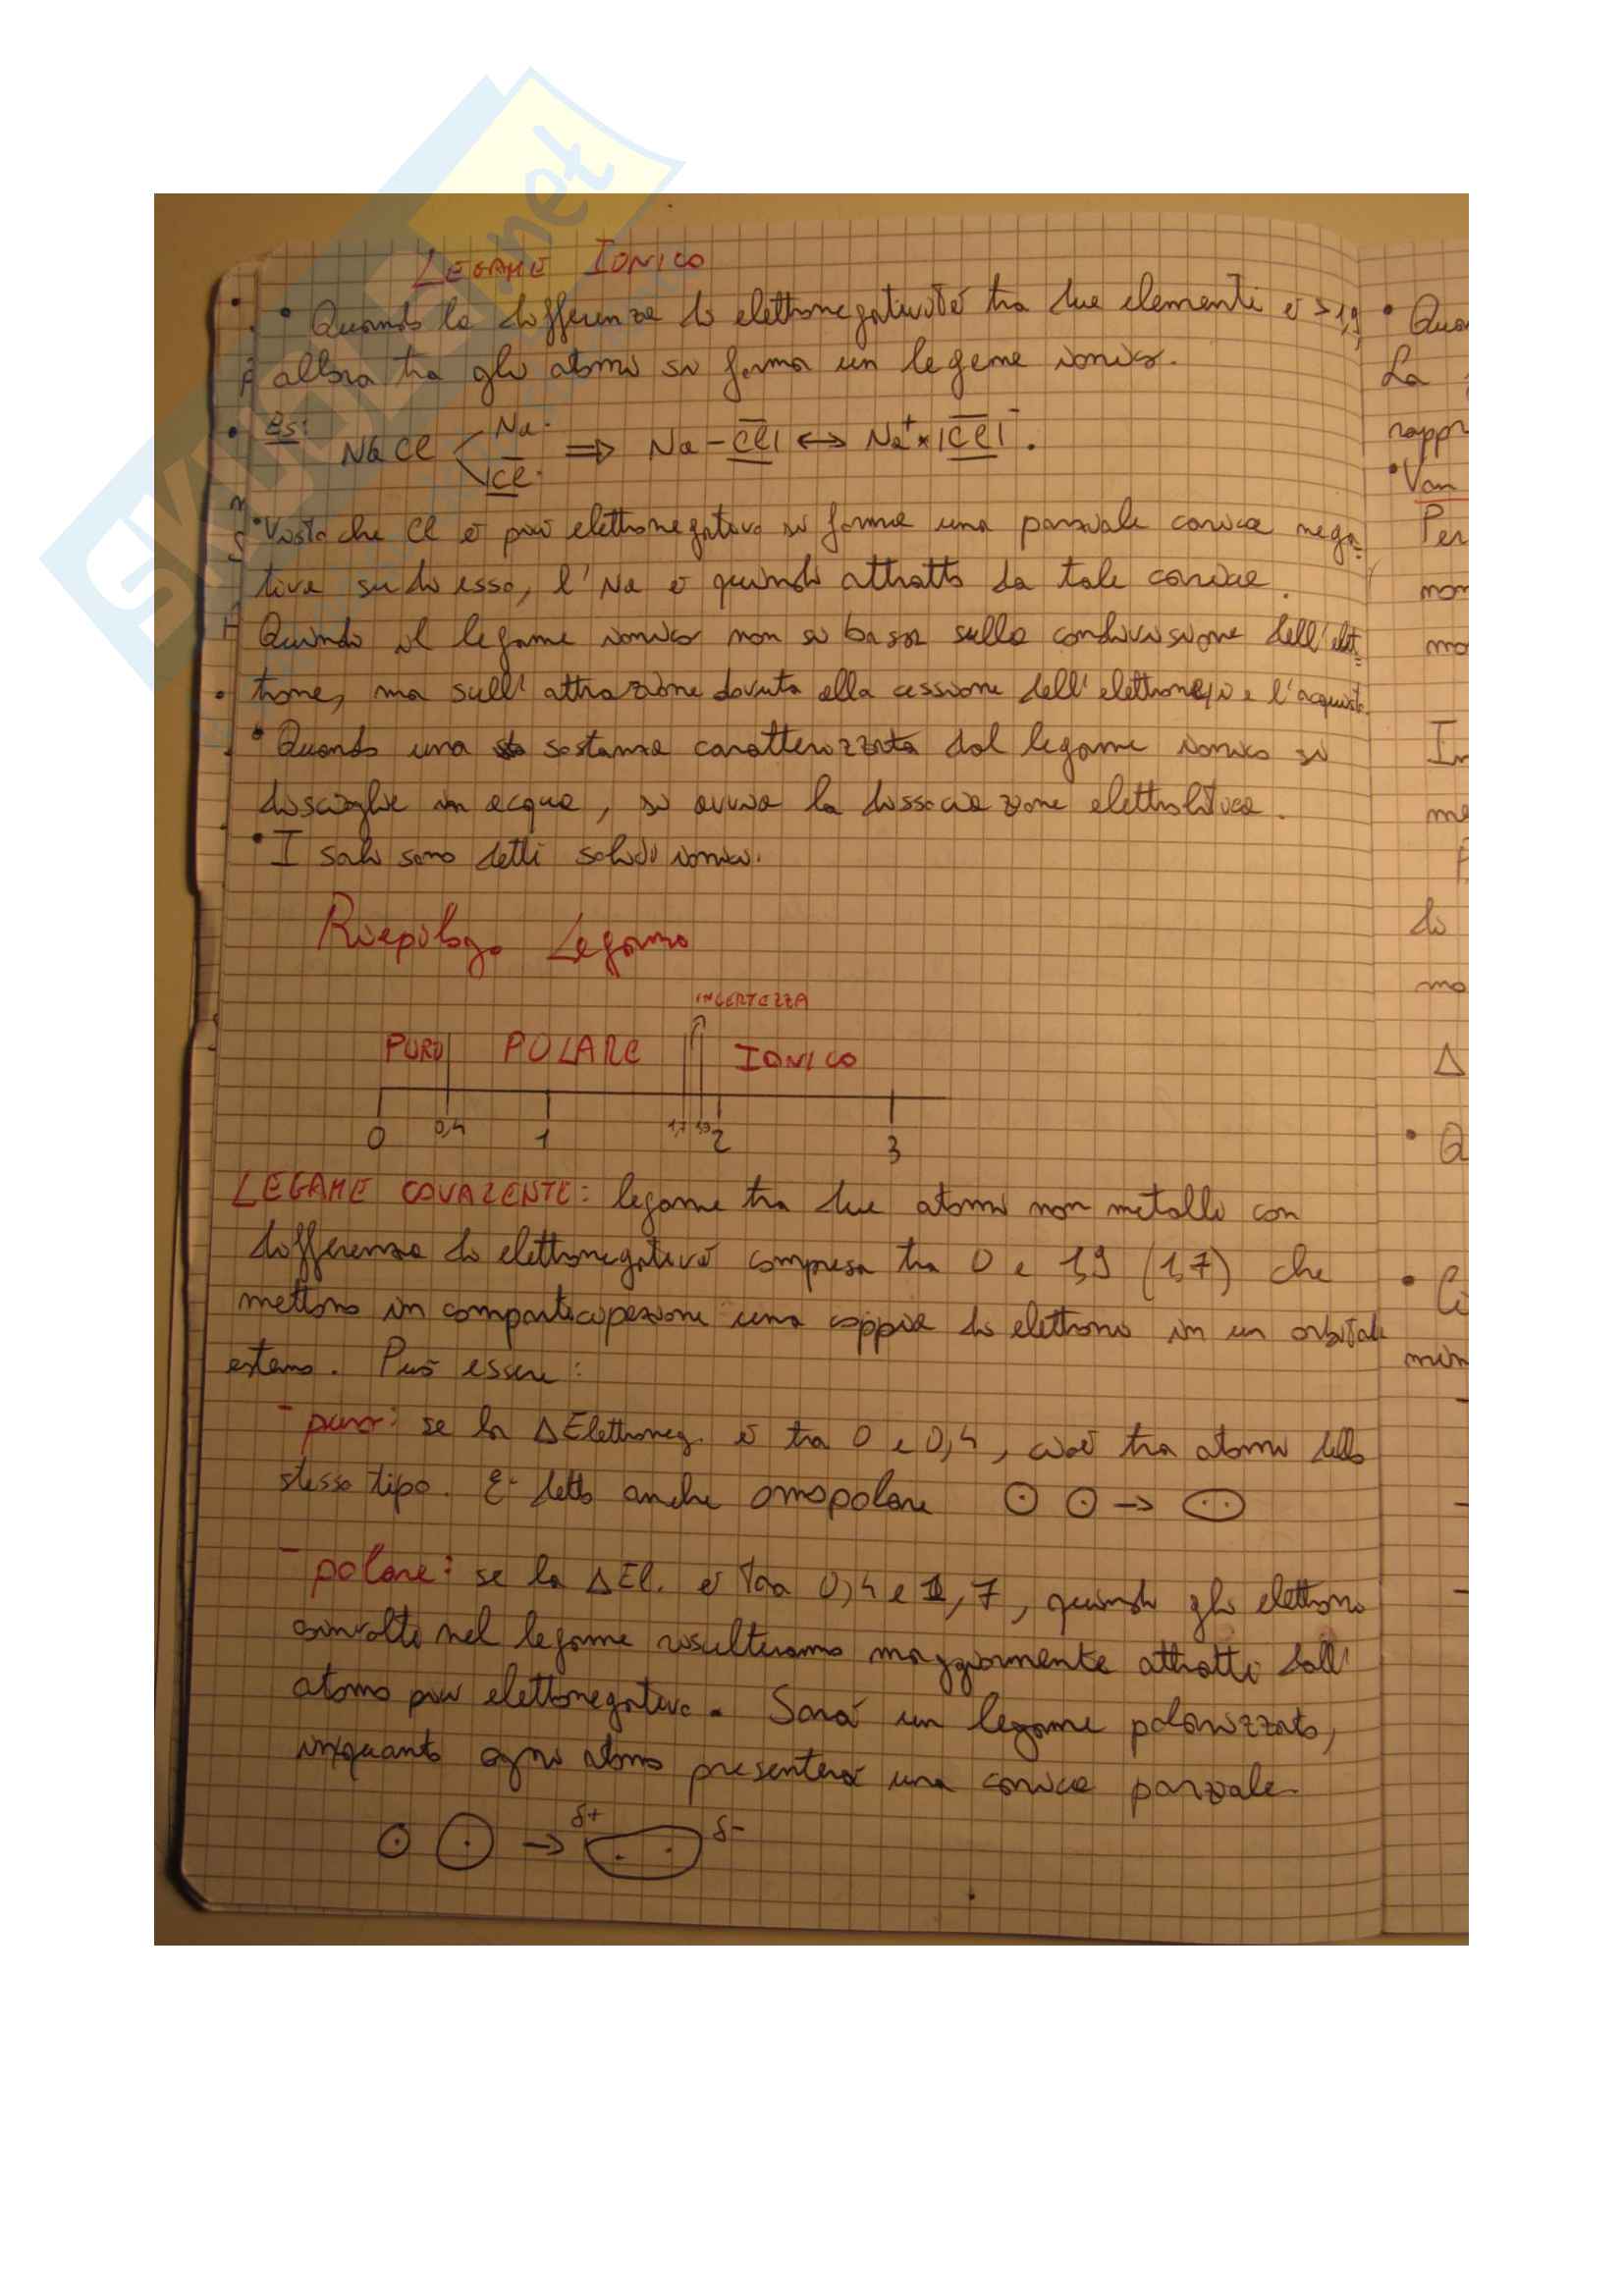 SKUOLA.net
LEGAME IONICO
• Quando la differenza di elettronegatività tra due elementi è > 1,9
allora tra gli atomi si forma un legame ionico.
Es: NaCl < Na· |Cl· ⇒ Na - Cl| ↔ Na⁺ × |Cl|⁻.
• Visto che Cl è più elettronegativo si forma una parziale carica nega=
tiva su di esso, l'Na è quindi attratto da tale carica.
Quindi il legame ionico non si basa sulla condivisione dell'elet=
trone, ma sull'attrazione dovuta alla cessione dell'elettrone/i e l'acquisto.
• Quando una sostanza caratterizzata dal legame ionico si
discioglie in acqua, si avvia la dissociazione elettrolitica.
• I sali sono detti solidi ionici.
Riepilogo Legami
INCERTEZZA
PURO POLARE IONICO
0 0,4 1 1,7 1,9 2 3
LEGAME COVALENTE: legame tra due atomi non metalli con
differenza di elettronegatività compresa tra 0 e 1,9 (1,7) che
mettono in compartecipazione una coppia di elettroni in un orbitale
esterno. Può essere:
- puro: se la ΔElettroneg. è tra 0 e 0,4, cioè tra atomi dello
stesso tipo. E' detto anche omopolare
- polare: se la ΔEl. è tra 0,4 e 1,7, quindi gli elettroni
coinvolti nel legame risulteranno maggiormente attratti dall'
atomo più elettronegativo. Sarà un legame polarizzato,
inquanto ogni atomo presenterà una carica parziale.
δ+ δ-
• Qua
La
rappr
• Van
Per
non
mo
In
me
di
mo
Δ
• Q
min